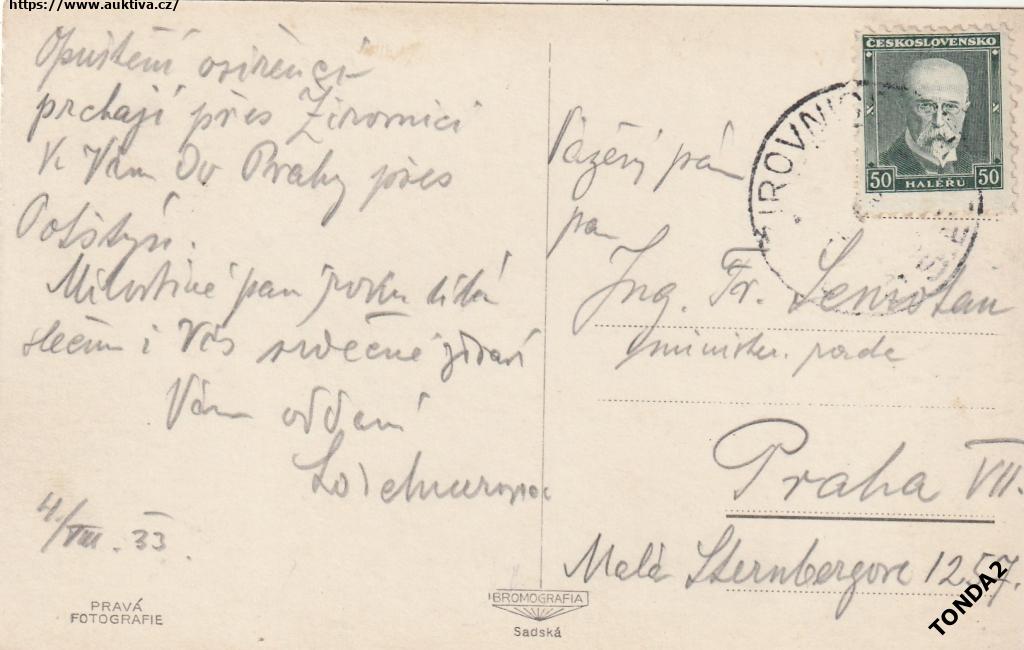 https://www.auktiva.cz/
Opuštění osiřenci
prchají přes Žirovnici
K Vám do Prahy přes
Potštýn.
Milostivé paní
slečnu i Vás srdečně zdraví
Vám oddaní
4/VIII. 33.
PRAVÁ
FOTOGRAFIE
BROMOGRAFIA
Sadská
ČESKOSLOVENSKO
50 HALÉŘŮ 50
ŽIROVNIC
Vážený pán
pan
Ing. Fr.
minister. rada
Praha VII.
Malá Sternbergova 1257.
TONDA2